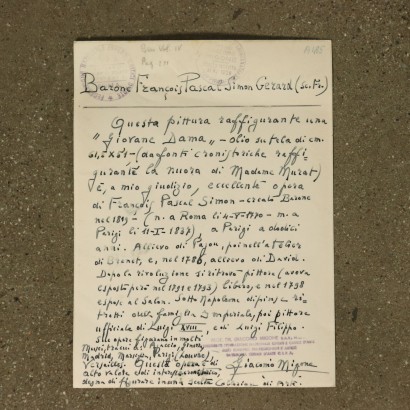 Barone François Pascal Simon Gerard (Sc. Fr.)
Questa pittura raffigurante una
"Giovane Dama" - olio su tela di cm.
61,5 x 51 - (da fonti cronistoriche raffi-
gurante la nuora di Madame Murat)
È, a mio giudizio, eccellente opera
di François Pascal Simon - creato Barone
nel - (n. a Roma li 4-V-1770 - m. a
Parigi li 11-I-1837), a Parigi a dodici
anni. Allievo di Pajou, poi nell'atelier
di Brenet, e, nel 1786, allievo di David.
Dopo la rivoluzione si ritrovò pittore (aveva
esposto però nel 1791 e 1795) libero, e nel 1798
espose al Salon. Sotto Napoleone dipinse ri-
tratti della famiglia Imperiale, poi pittore
ufficiale di Luigi XVIII, e di Luigi Filippo.
Sue opere figurano in molti
Musei, tra cui a:
Madrid, Parigi (Louvre)
Versailles. Questa opera di
alto valore
degna di figurare in una
Giacomo Migone